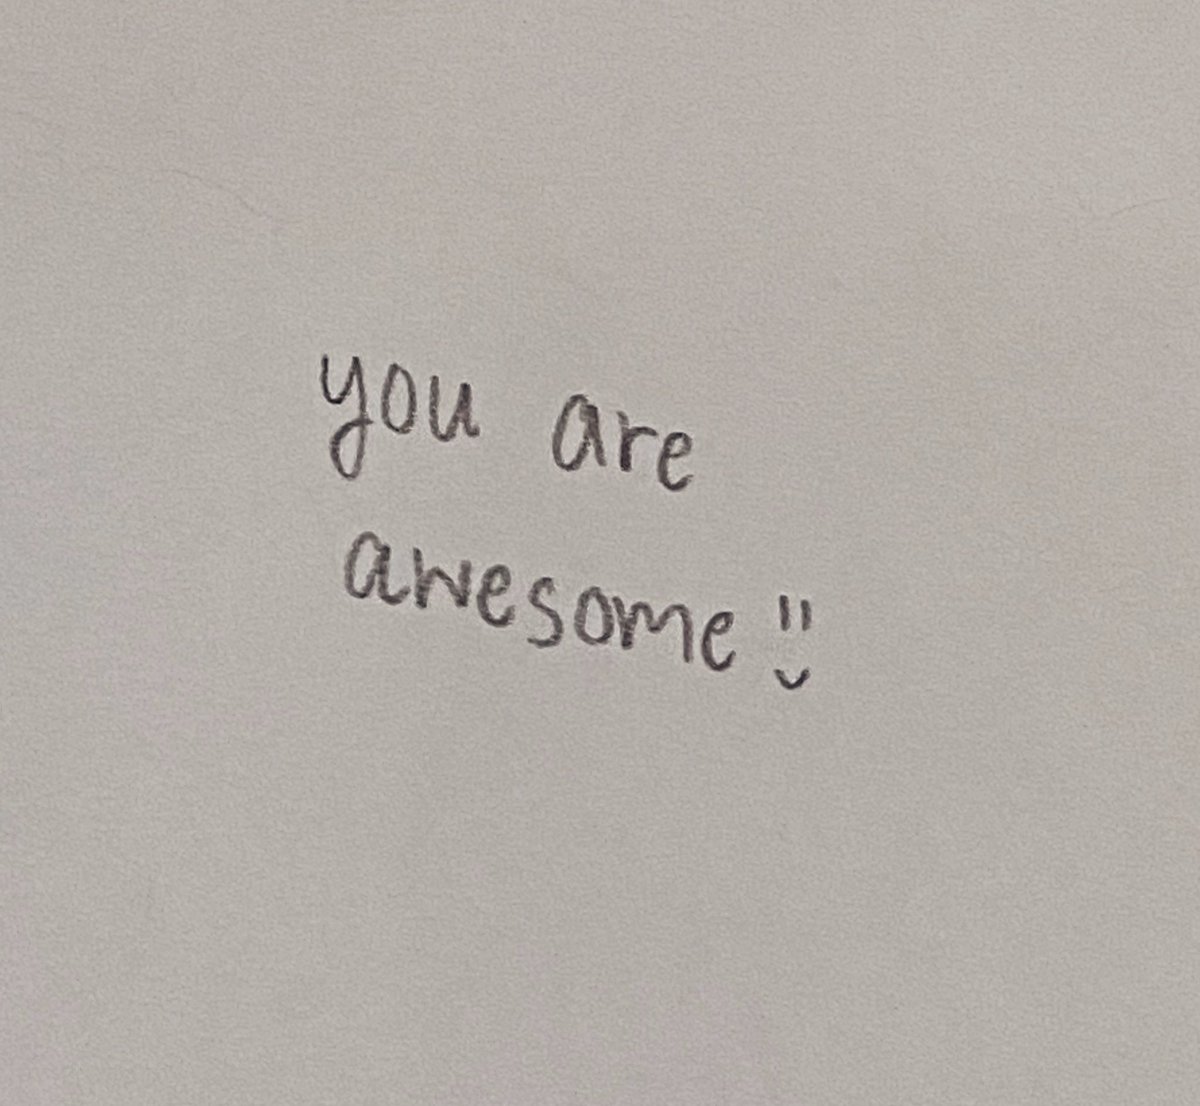 you are
awesome !!